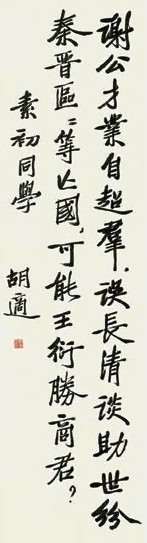 謝公才業自超羣，誤長清談助世紛
秦晉區區等亡國，可能王衍勝商君？
素初同學
胡適